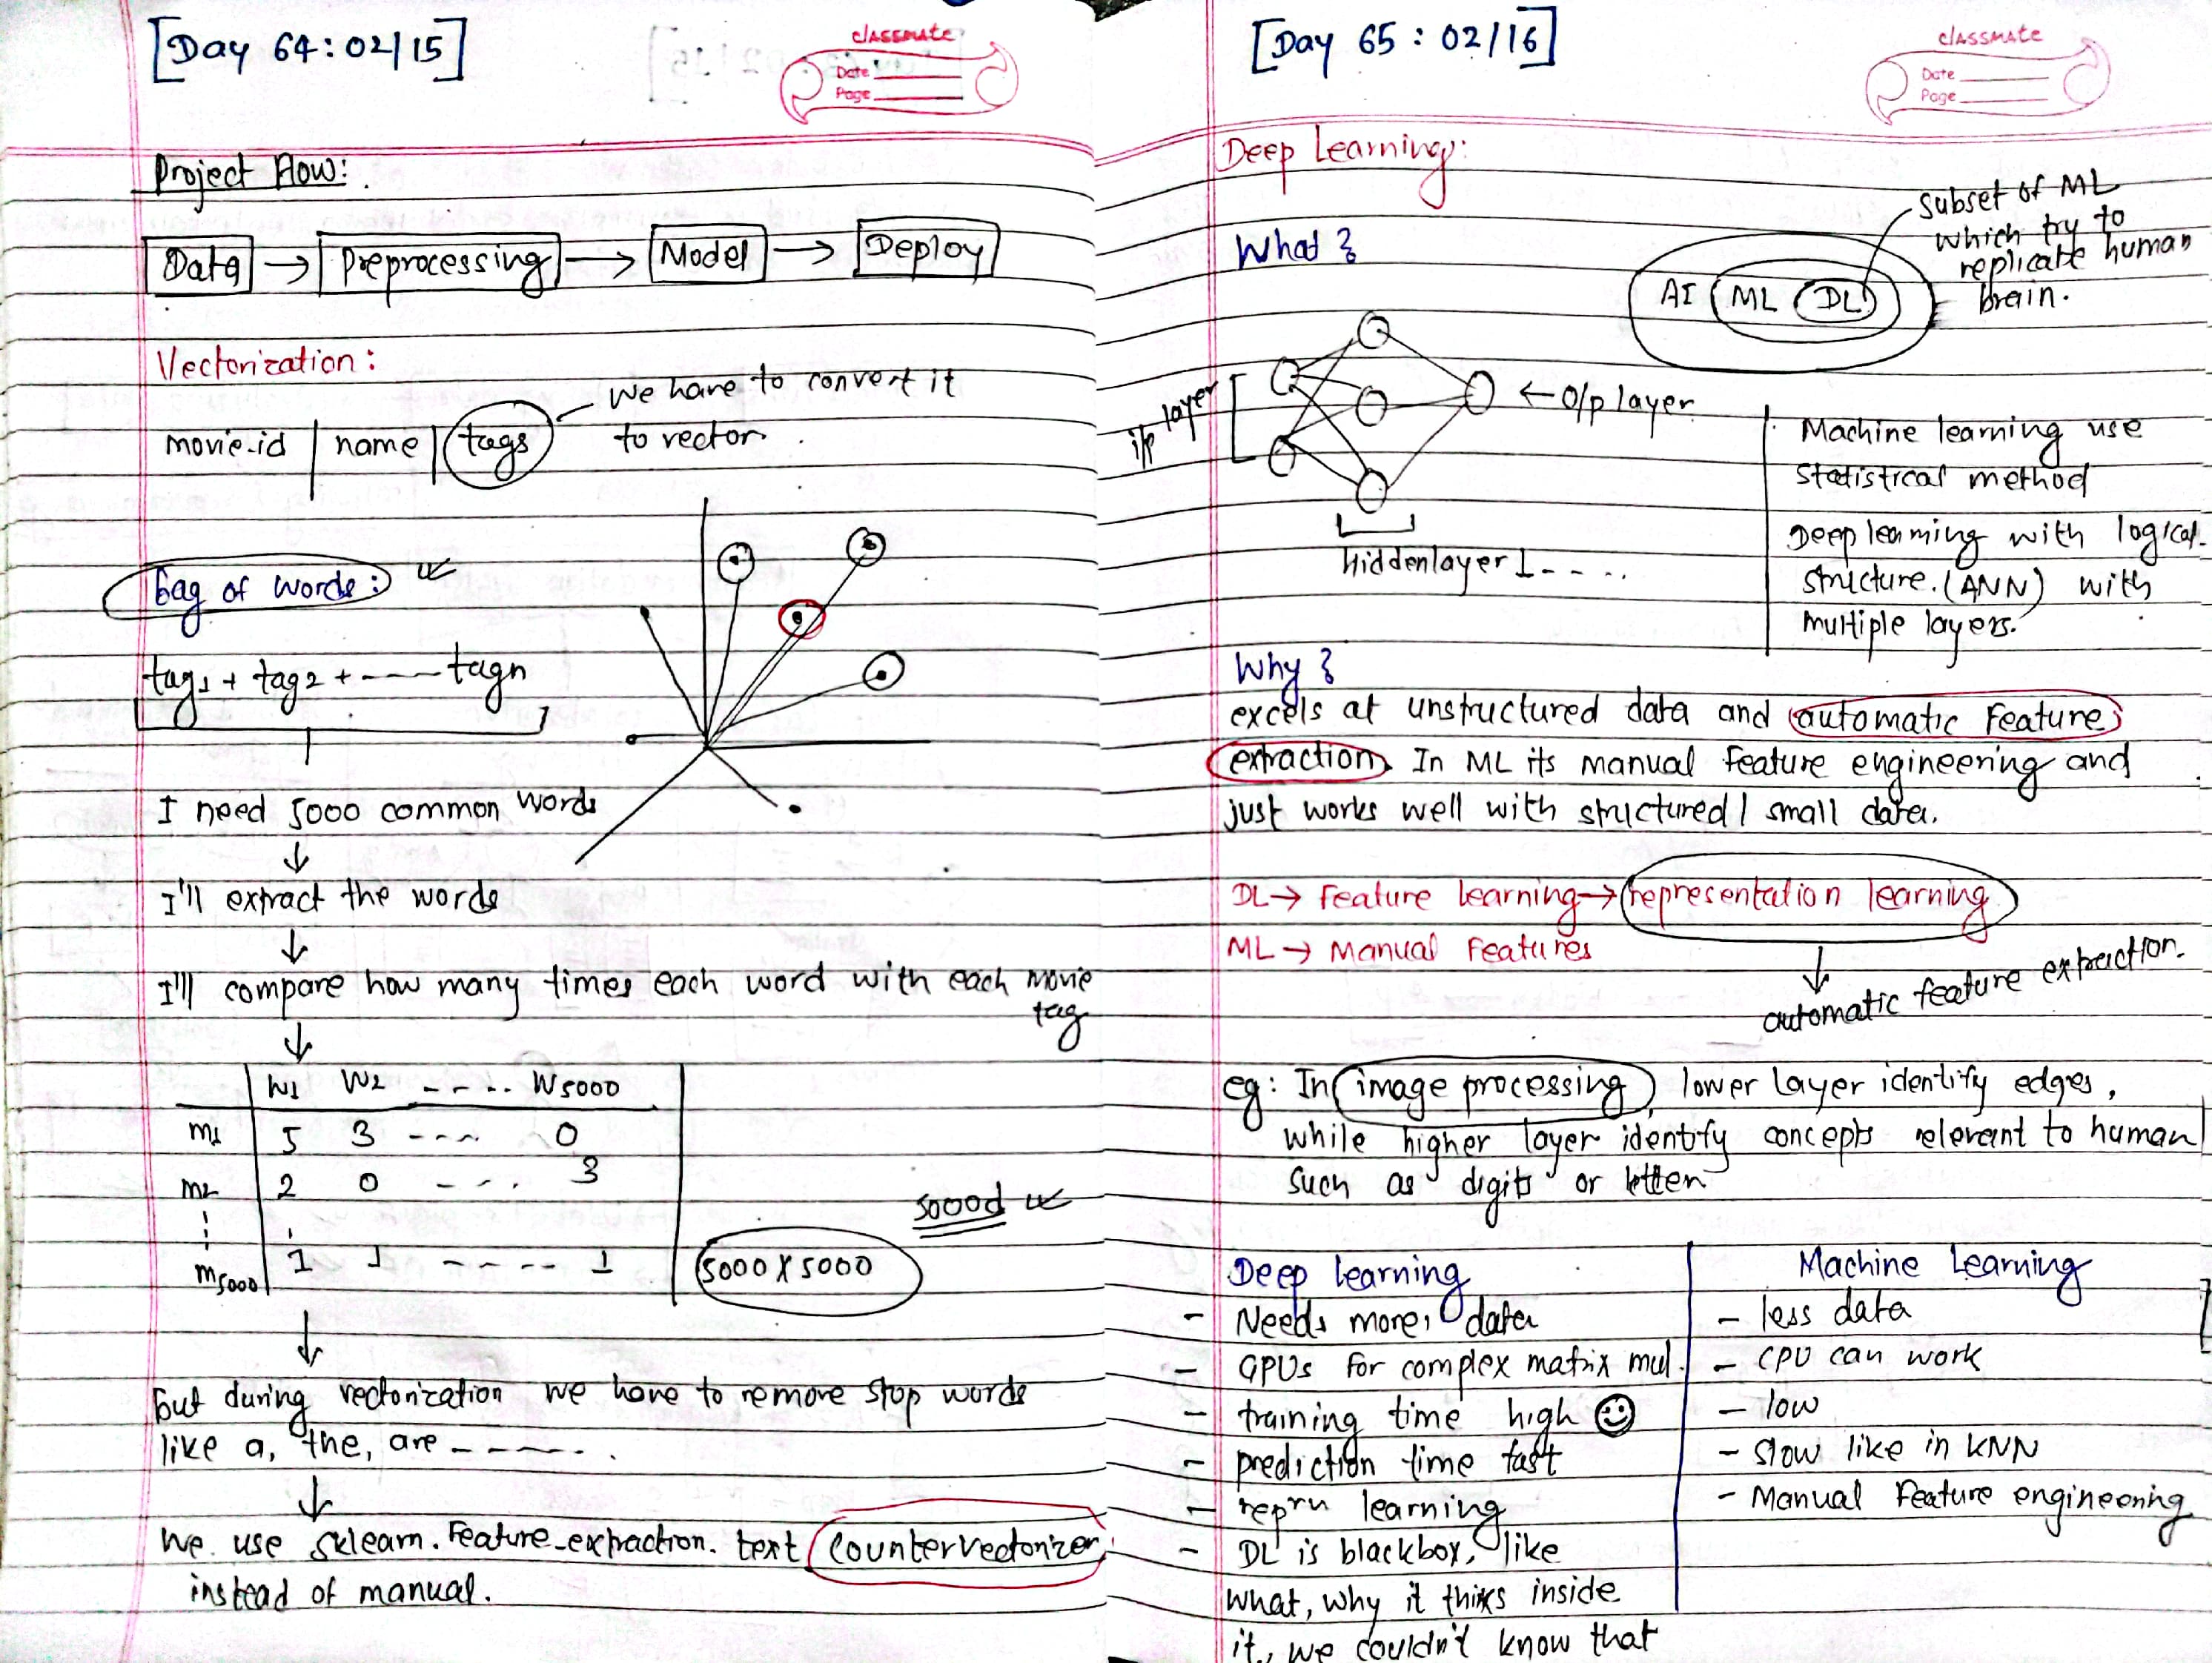 [Day 64: 02/15]
classmate
Date
Page
Project Flow:
Data → Preprocessing → Model → Deploy
Vectorization:
we have to convert it
to vector.
movie-id | name | tags
bag of words:
tag1 + tag2 + ---- tagn
I need 5000 common words
↓
I'll extract the words
↓
I'll compare how many times each word with each movie
tag
↓
W1 W2 ----. W5000
m1 5 3 ---- 0
m2 2 0 ---. 3
m5000 1 1 ----- 1
5000d
5000 X 5000
↓
but during vectorization we have to remove stop words
like a, the, are -----.
↓
We use sklearn.feature_extraction.text countervectorizer
instead of manual.
[Day 65: 02/16]
classmate
Date
Page
Deep Learning:
What?
subset of ML
which try to
replicate human
brain.
AI ML DL
i/p layer
← O/p layer
Hiddenlayer 1 - - - .
Machine learning use
statistical method
Deep learning with logical
structure. (ANN) with
multiple layers.
Why?
excels at unstructured data and automatic feature
extraction. In ML its manual feature engineering and
just works well with structured / small data.
DL → Feature learning → representation learning
ML → Manual Features
↓
automatic feature extraction.
eg: In image processing, lower layer identify edges,
while higher layer identify concepts relevant to human
such as digits or letters
Deep learning
- Needs more data
- GPUs for complex matrix mul.
- training time high
- prediction time fast
- reprn learning
- DL is blackbox, like
what, why it thinks inside
it, we couldn't know that
Machine Learning
- less data
- CPU can work
- low
- slow like in KNN
- Manual Feature engineering